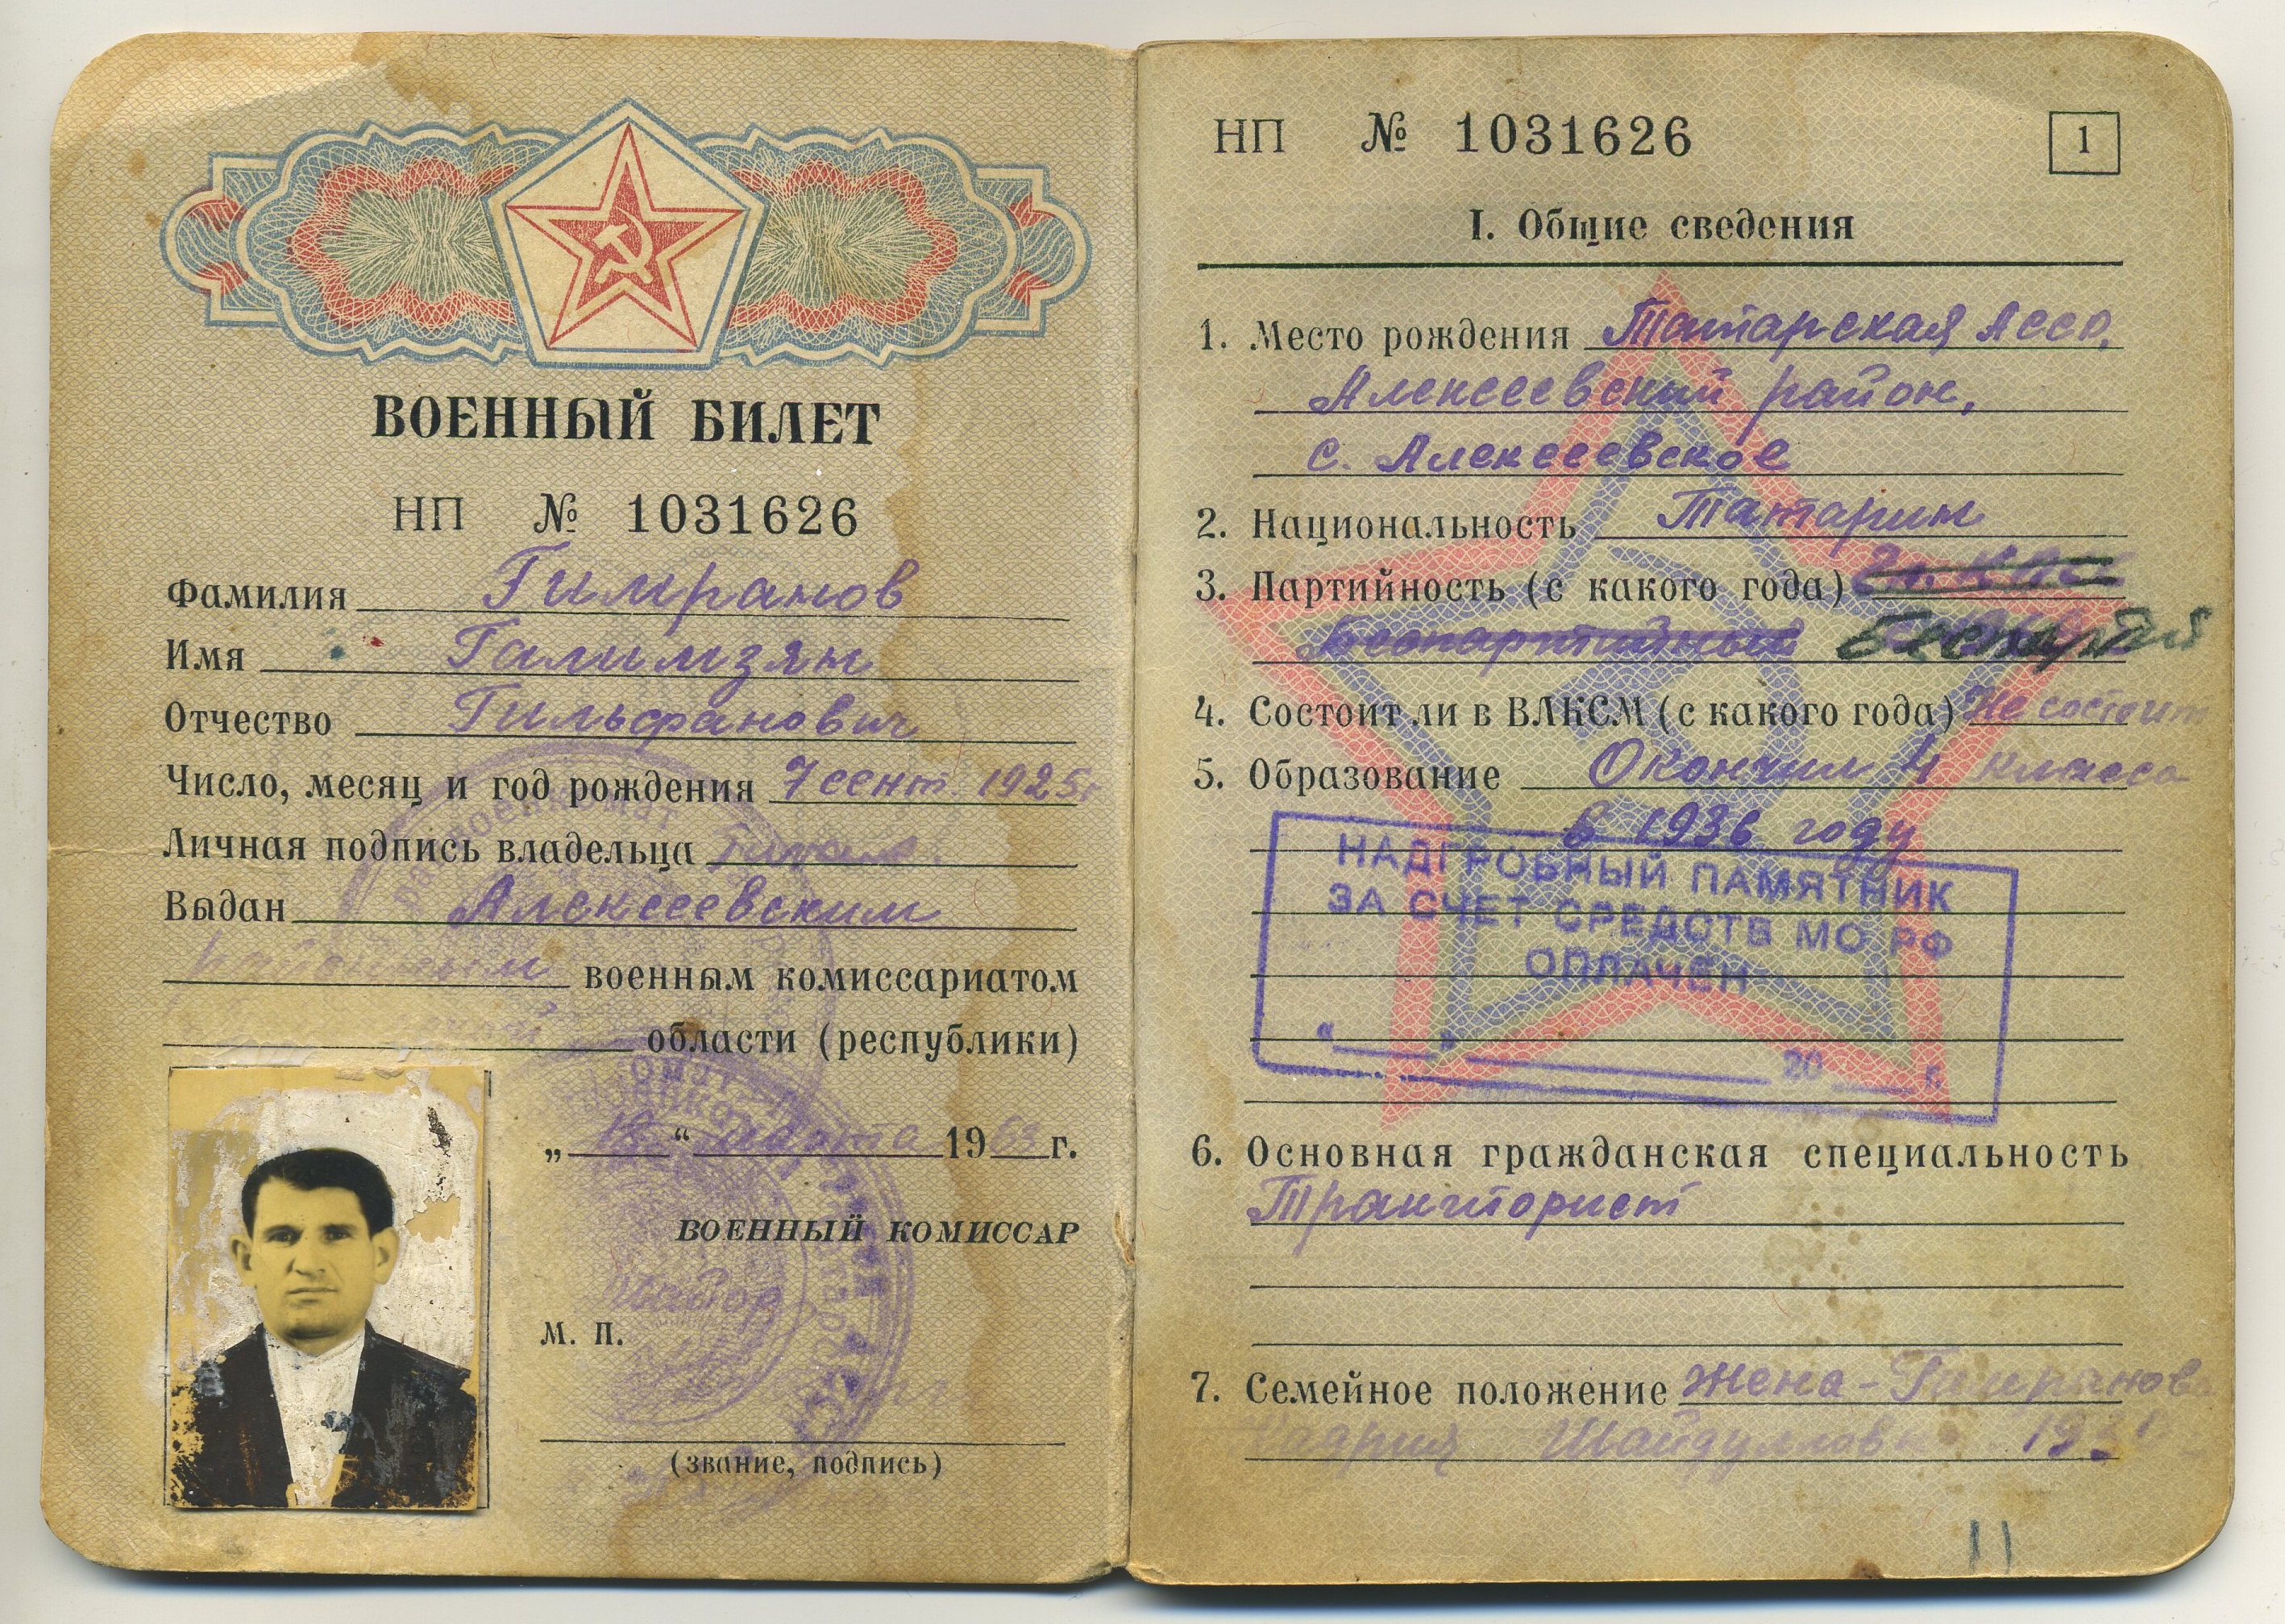 ВОЕННЫЙ БИЛЕТ
НП № 1031626
Фамилия Гимранов
Имя Галимзян
Отчество Гильфанович
Число, месяц и год рождения 7 сент. 1925г
Личная подпись владельца
Выдан Алексеевским
районным военным комиссариатом
области (республики)
„ “ марта 1963 г.
ВОЕННЫЙ КОМИССАР
Майор
М. П.
(звание, подпись)
НП № 1031626
1
I. Общие сведения
1. Место рождения Татарская АССР,
Алексеевский район,
с. Алексеевское
2. Национальность Татарин
3. Партийность (с какого года)
Беспартийный
4. Состоит ли в ВЛКСМ (с какого года) Не состоит
5. Образование Окончил 4 класса
в 1936 году
НАДГРОБНЫЙ ПАМЯТНИК
ЗА СЧЕТ СРЕДСТВ МО РФ
ОПЛАЧЕН
« » 20 г.
6. Основная гражданская специальность
Тракторист
7. Семейное положение жена - Гимранова
Шайдулловна
11